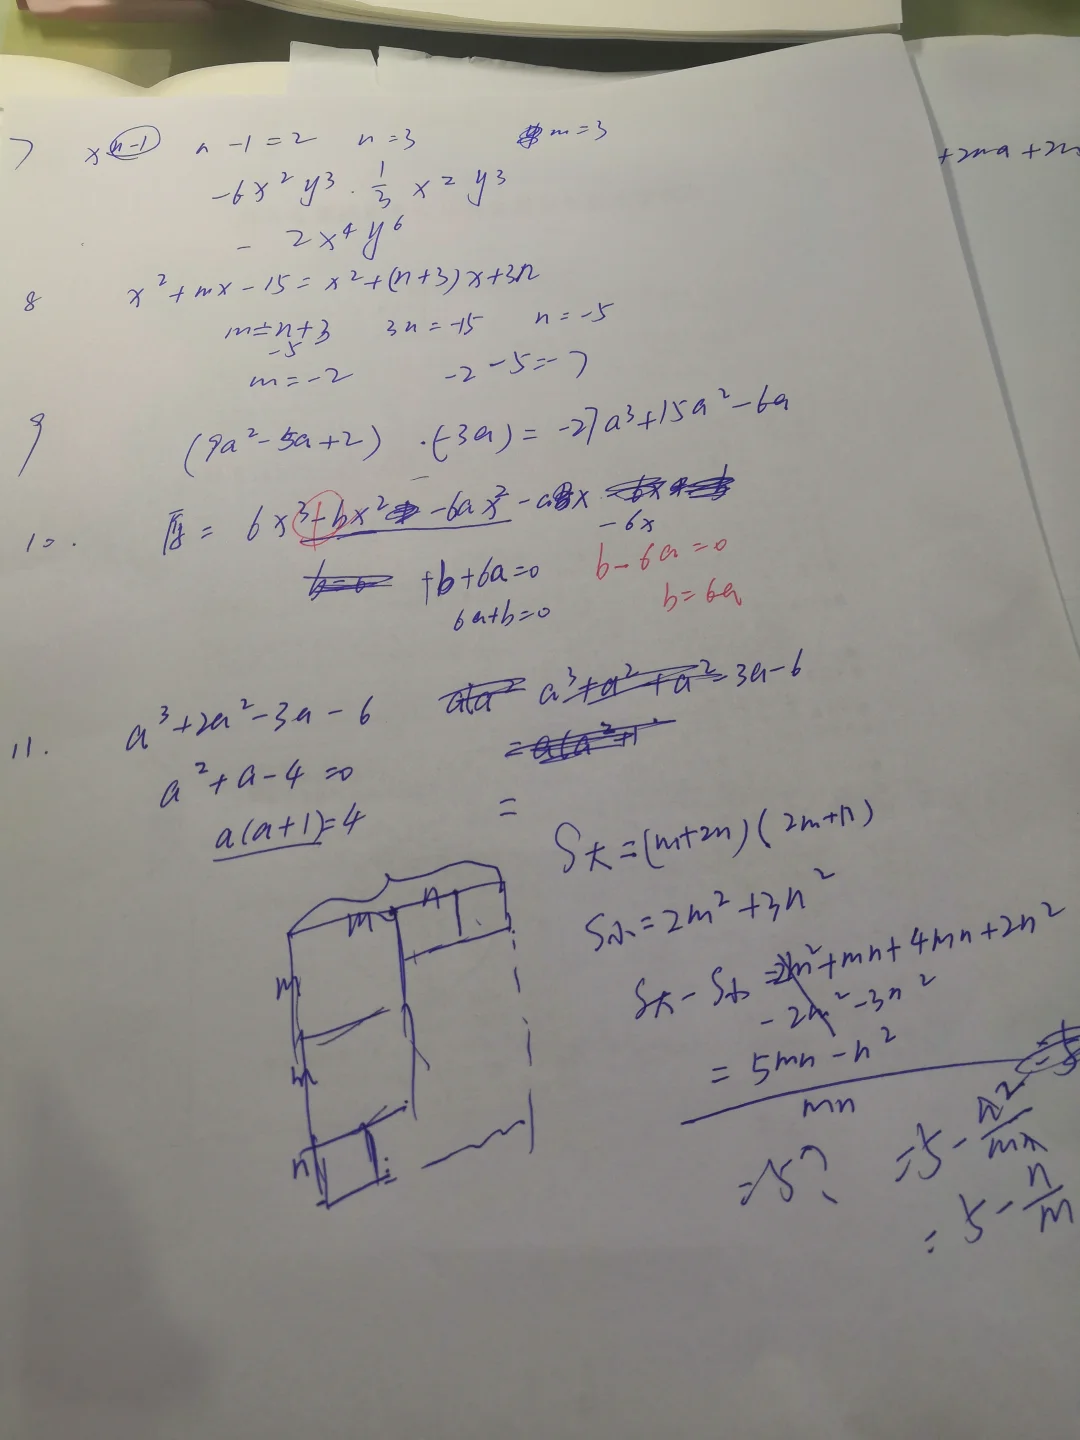 7 xⁿ⁻¹ n-1=2 n=3 m=3
-6x²y³·1/3x²y³
-2x⁴y⁶
8 x²+mx-15=x²+(n+3)x+3n
m=n+3 3n=-15 n=-5
-5
m=-2 -2-5=-7
9 (9a²-5a+2)·(-3a)=-27a³+15a²-6a
10. 原= 6x³-bx²-6ax²-abx
-6x
+b+6a=0 b-6a=0
6a+b=0 b=6a
11. a³+2a²-3a-6 a³+a²+a²-3a-6
=a(a²+1
a²+a-4=0
a(a+1)=4 =
S大=(m+2n)(2m+n)
m n
S小=2m²+3n²
m
S大-S小=2m²+mn+4mn+2n²
-2m²-3n²
m
=5mn-n²
mn
n
=5? =5-n²/mn
=5-n/m
+2ma+2